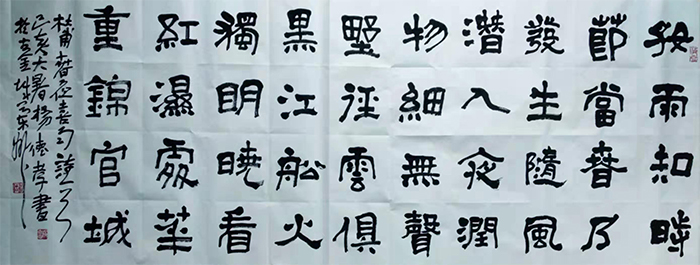 好雨知時
節當春乃
發生隨風
潛入夜潤
物細無聲
野徑雲俱
黑江船火
獨明曉看
紅濕處花
重錦官城
杜甫春夜喜雨詩一首
己亥大暑楊德孝書
於金城